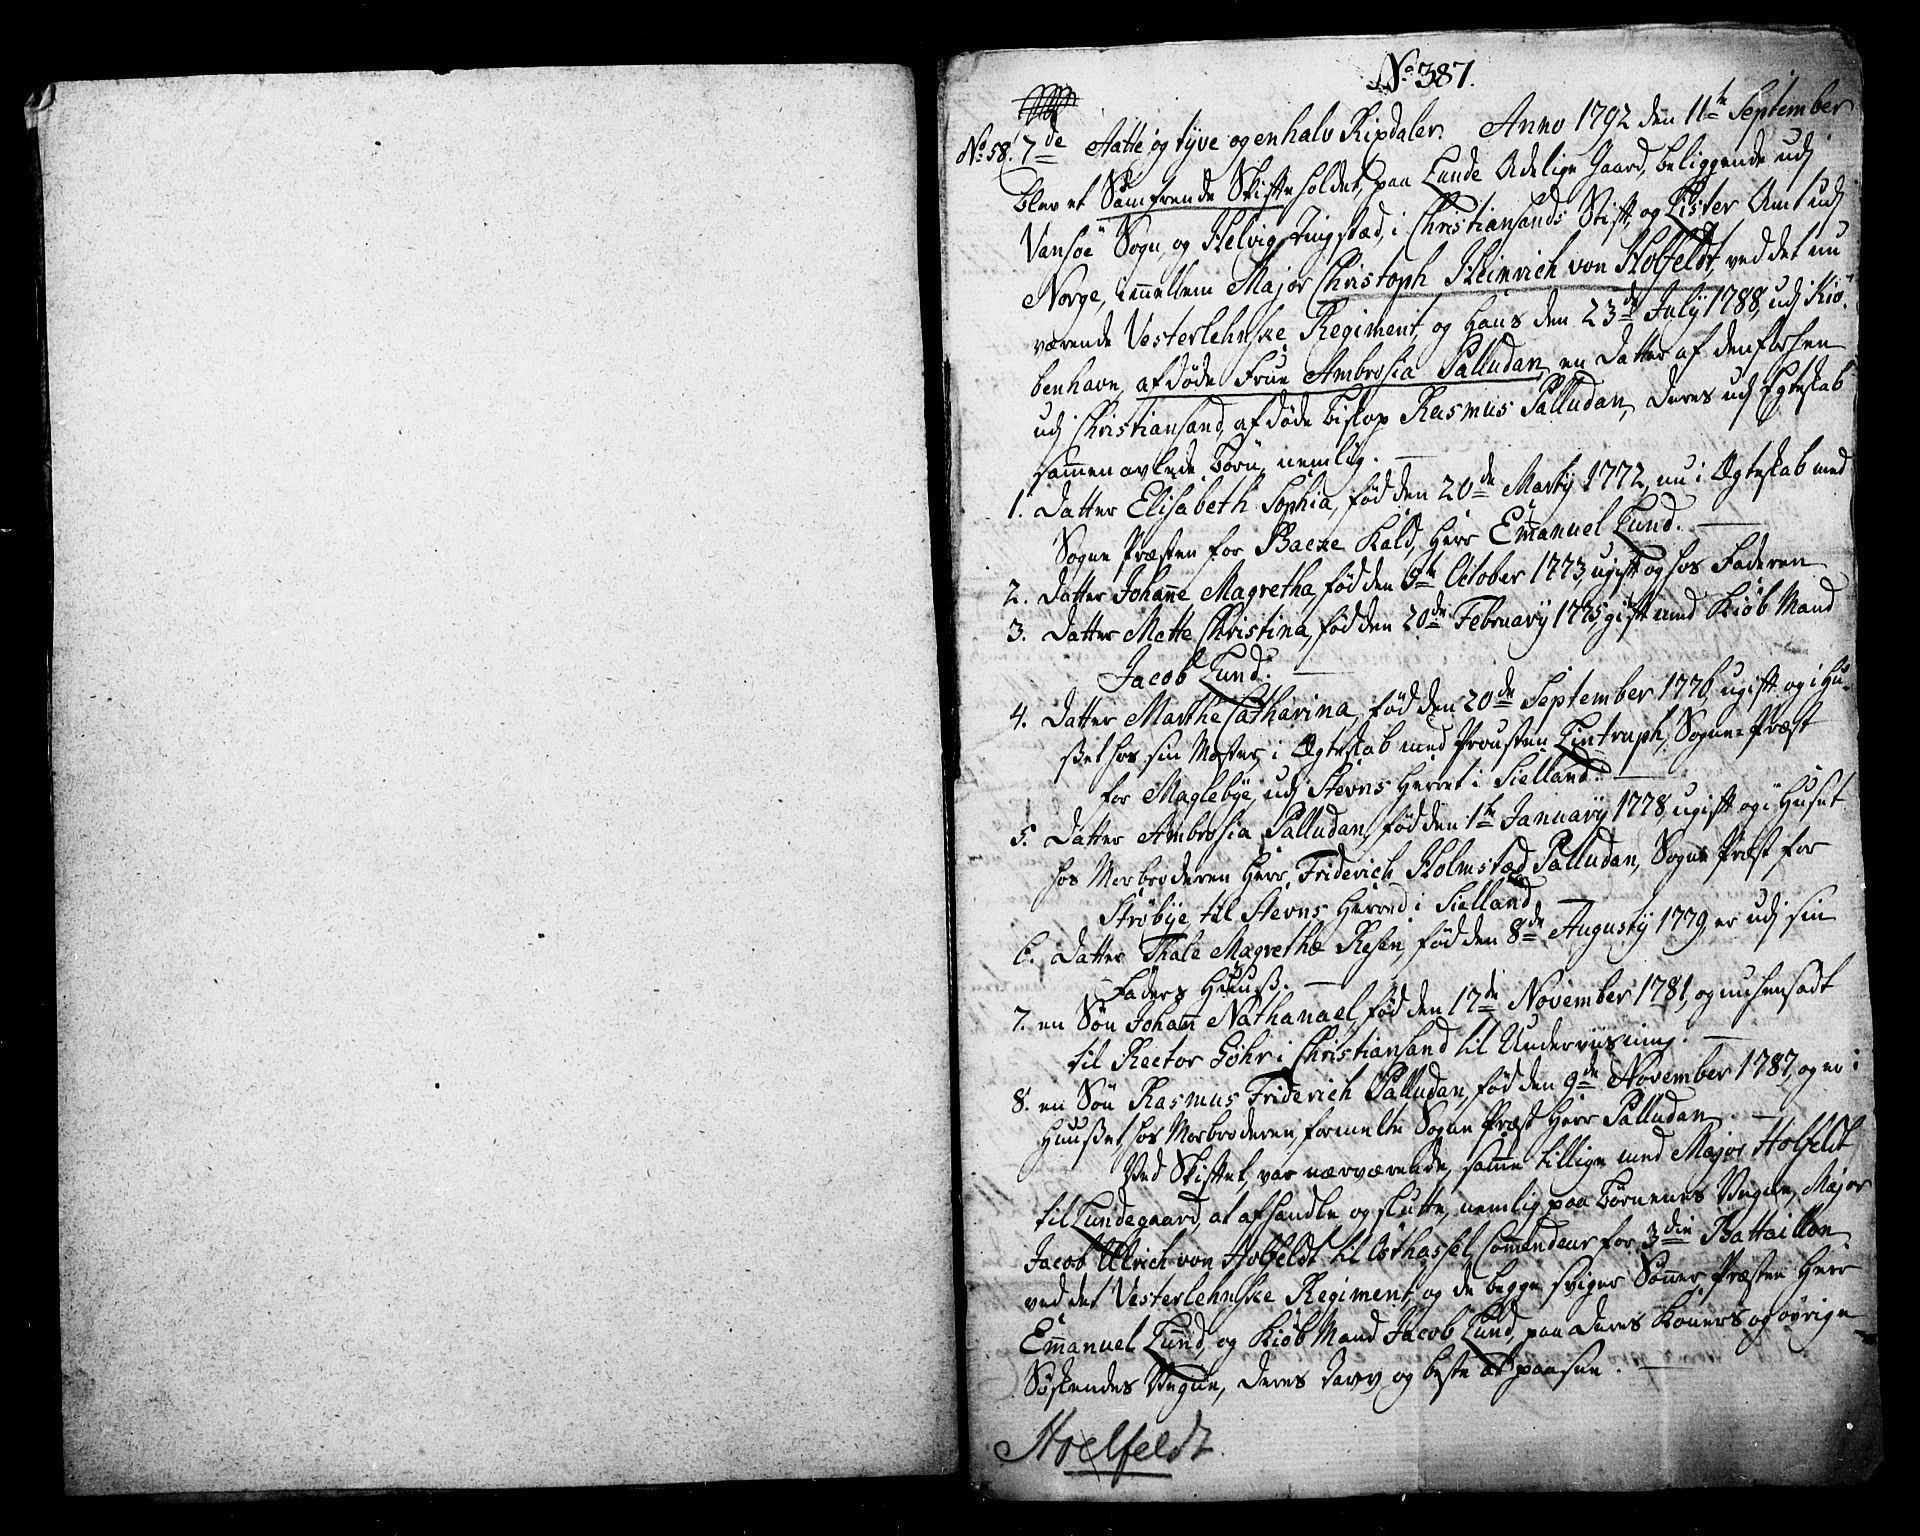 No 387.
No 58. 7de Aatte og tyve og en halv Rixdaler. Anno 1792 den 11te September
blev et Samfrende Skifte holdet, paa Lunde Adelige Gaard, beliggende udj
Vansöe Sogn, og Helvig Tingstæd, i Christiansands Stift, og Lister Amt udj
Norge, imellem Major Christoph Heinrich von Holfeldt, ved det nu
værende Vesterlehnske Regiment, og Hans den 23de Julÿ 1788, udj Kiö-
benhavn, afdøde Frue Ambrosia Palludan, en Datter af den forhen
udj Christiansand, afdøde Biskop Rasmus Palludan, Deres udj Egteskab
sammen avlede Børn, nemlig.
1. Datter Elisabeth Sophia, fød den 20de Martÿ 1772, nu i Ægteskab med
Sogne Præsten for Backe Kald, Herr Emanuel Lund.
2. Datter Johanne Magretha, fød den 5te October 1773, ugift og hos Faderen
3. Datter Mette Christina, fød den 20de Februarÿ 1775, gift med Kiøb Mand
Jacob Lund.
4. Datter Marthe Catharina, fød den 20de September 1776, ugift og i Hu-
ßet hos sin Moster, i Ægteskab med Prousten Lintruph, Sogne-Præst
for Maglebÿe, udj Stevns Herret i Sielland.
5. Datter Ambrosia Palludan, fød den 1te Januarÿ 1778, ugift og i Huset
hos Morbroderen Herr Friderich Holmsted Palludan, Sogne Præst for
Strøbÿe til Stevns Herred i Sielland.
6. Datter Thale Magrethe Resen, fød den 8de Augustÿ 1779, er udj sin
Faders Huuß.
7. en Søn Johan Nathanael, fød den 17de November 1781, og nu hensadt
til Rector Søhr i Christiansand til Underviisning.
8. en Søn Rasmus Friderich Palludan, fød den 9de November 1787, og er i
Huußet, hos Morbroderen, formelte Sogne Præst Herr Palludan.
Ved Skiftet, var nærværende, samme tillige med Major Holfeldt
til Lundegaard, at afhandle og slutte, nemlig, paa Børnenes Vegne, Major
Jacob Ulrich von Holfeldt til Østhassel, Commendeur for 3die Battaillon
ved det Vesterlehnske Regiment, og de begge Sviger Sønner, Præsten Herr
Emanuel Lund, og Kiøb Mand Jacob Lund, paa Deres Koners og øvrige
Søskendes Vegne, Deres Tarv og beste at paasee.
Hoelfeldt